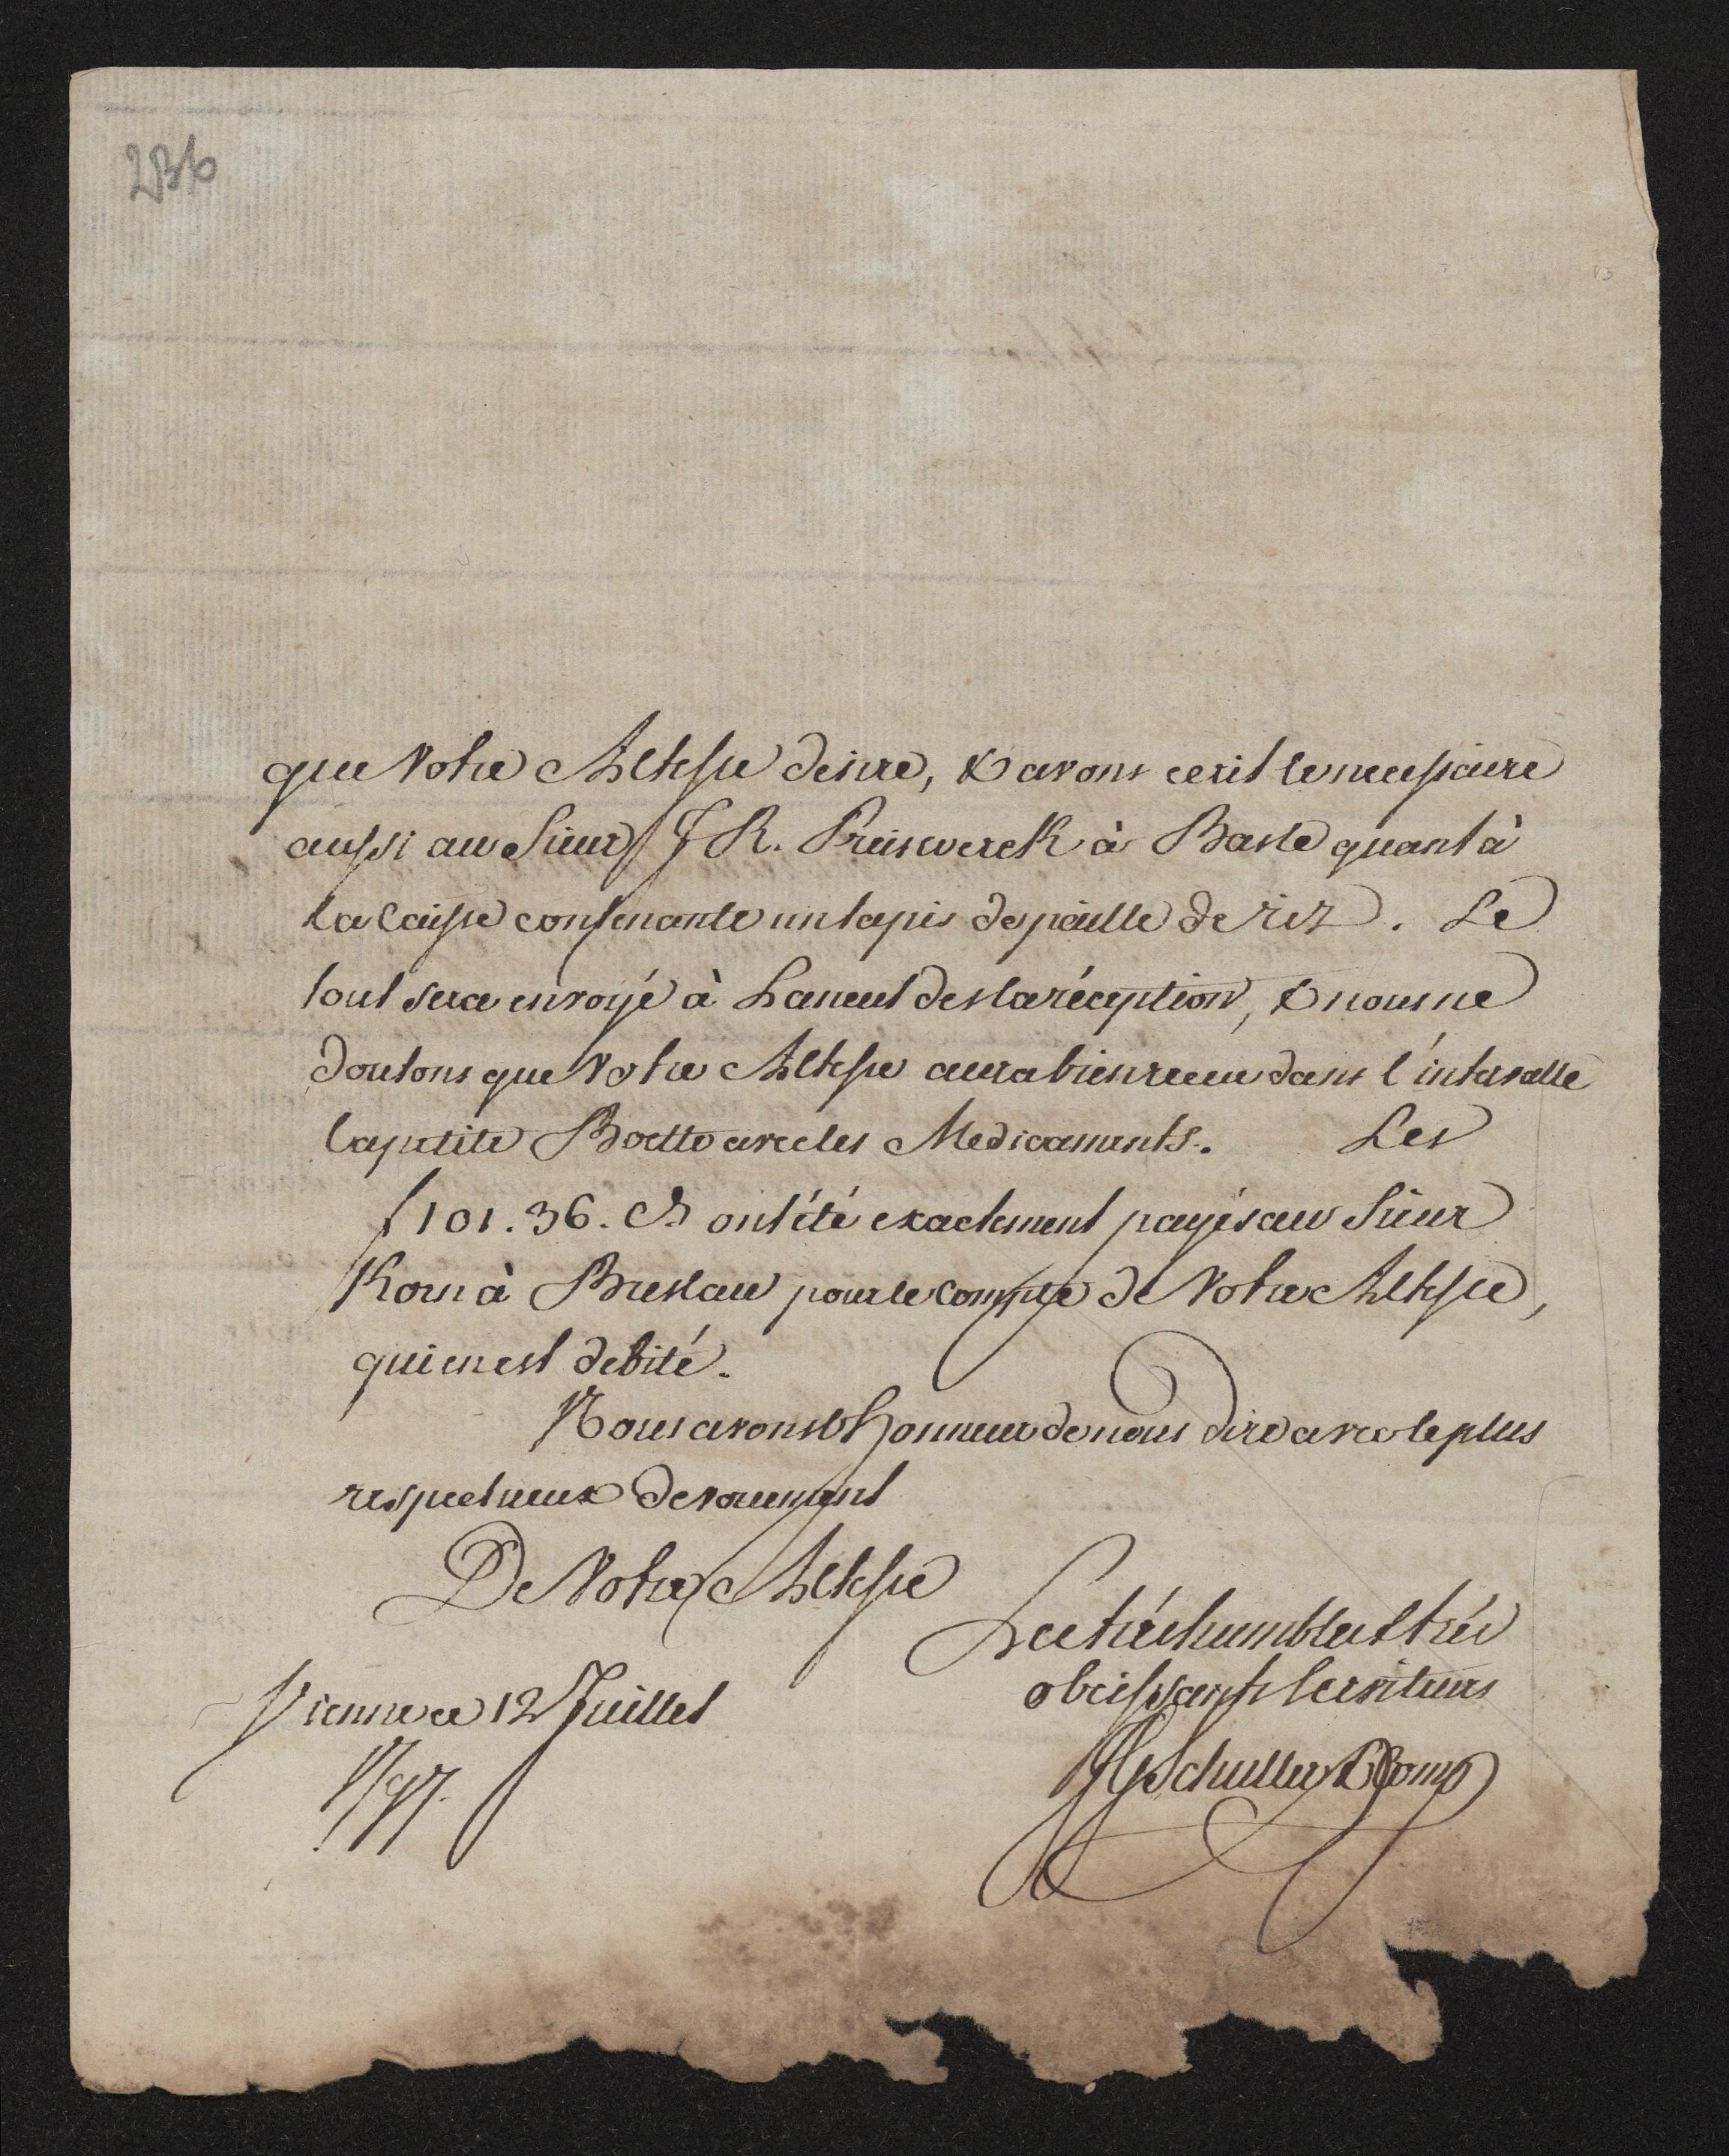 236
que Votre Altesse desire, & avons ecrit le necessaire
aussi au Sieur J R. Preiswerck à Basle quant à
la Caisse contenante un tapis de paille de riz. Le
tout sera envoyé à Lancut des la réception, & nous ne
doutons que Votre Altesse aura bien recue dans l'intervalle
la petite Boette avec les Medicaments. Les
f 101. 36. ont été exactement payés au Sieur
Korn à Breslau pour le Compte de Votre Altesse,
qui en est debité.
Nous avons l'honneur de nous dire avec le plus
respectueux devouement
De Votre Altesse
Les trés humbles & trés
obeissants serviteurs
Schuller & Comp
Vienne ce 12 Juillet
1797.